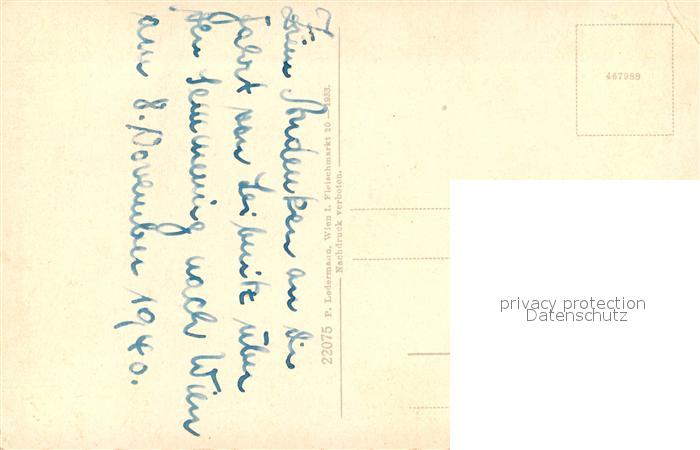 Zum Andenken an die
Fahrt von Leibnitz über
den Semmering nach Wien
am 8. November 1940.
22075 P. Ledermann, Wien I. Fleischmarkt 20 — 1933.
Nachdruck verboten.
467988
privacy protection
Datenschutz